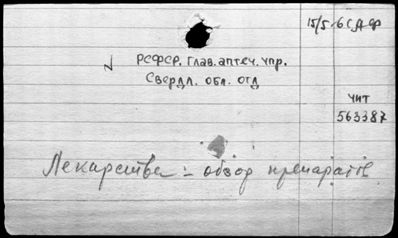 15/5-6
РСФСР. Глав. аптеч. упр.
Свердл. обл. отд
ЧИТ
563387
Лекарства - обзор препаратов